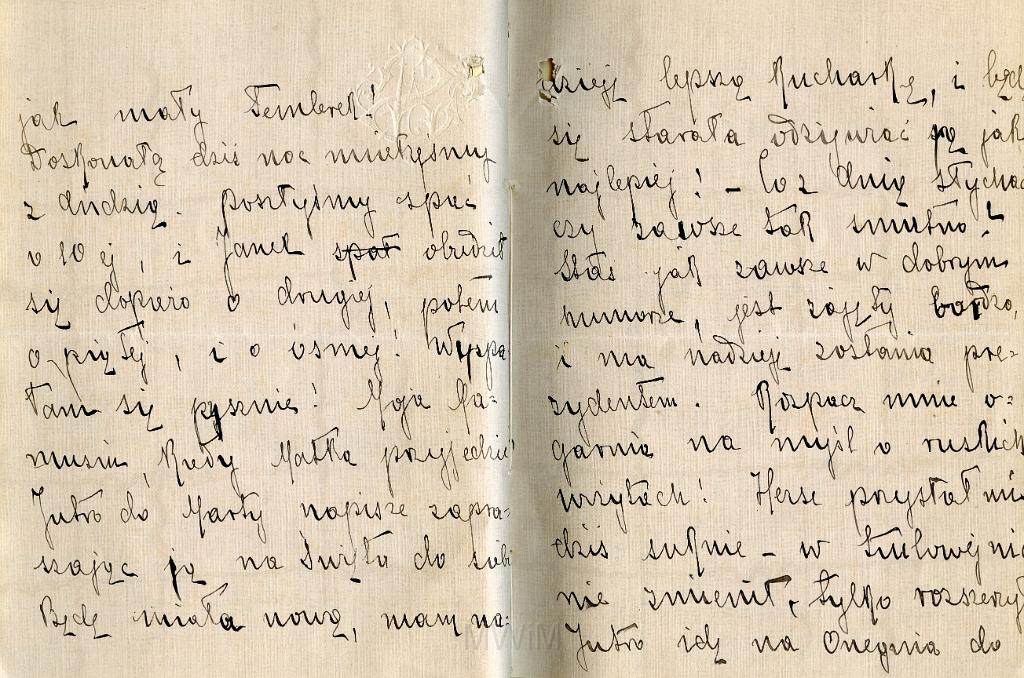 jak mały Temberek!
Doskonałą dziś noc mieliśmy
z dudzią. Poszłyśmy spać
o 10 ej, i Janek spał obudził
się dopiero o drugiej, potem
o piątej, i o ósmej! Wyspa-
łam się pysznie! Moja Ma-
musiu, kiedy Matka przyjedzie?
Jutro do Marty napiszę zapra-
szając ją na Święta do siebie
Będę miała nową, mam na-
dzieję lepszą Kucharkę, i będę
się starała odżywiać ją jak
najlepiej! – Co z dnią słychać
czy zawsze tak smutno?
Staś jak zawsze w dobrym
humorze, jest zajęty bardzo,
i ma nadzieję zostania pre-
zydentem. Rozpacz mnie o-
garnia na myśl o ruskich
wizytach! Herse przysłał mi
dziś suknie – w tiulowej nic
nie zmienił, tylko rozszerzył
Jutro idę na Onegina do
MWiM